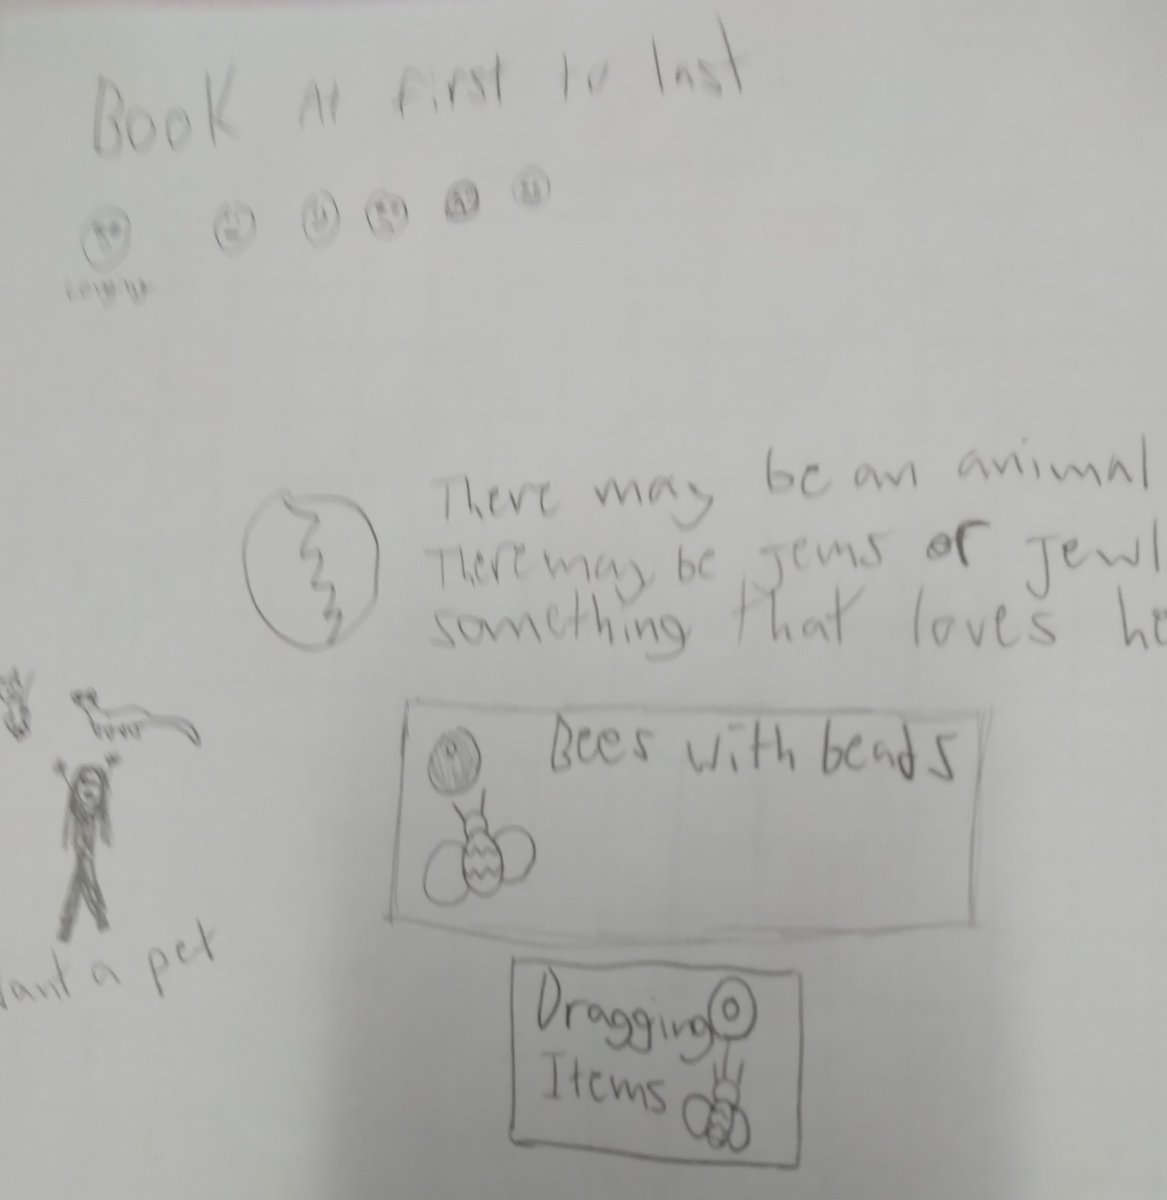 Book At first to last
There may be an animal
There may be jems or Jewl
something that loves he
Bees with beads
ant a pet
Dragging
Items